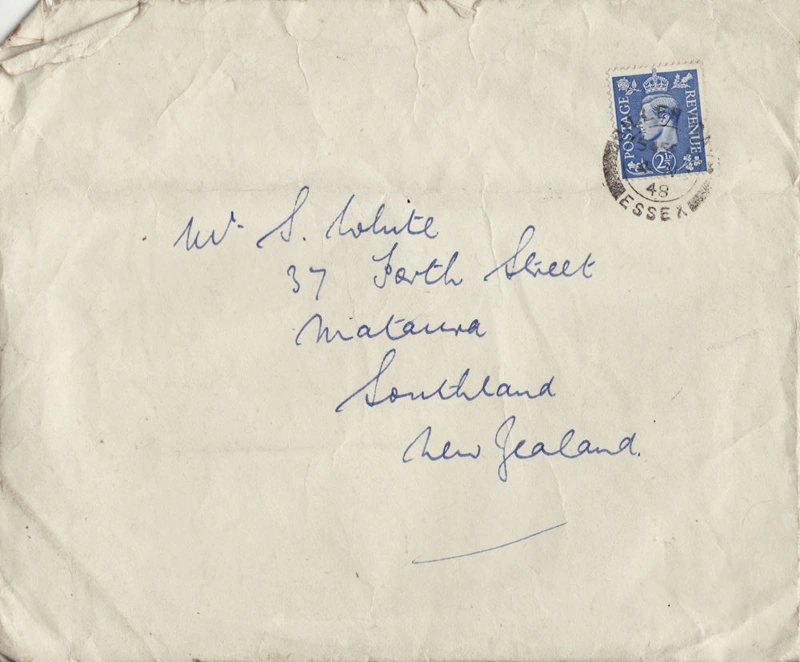 POSTAGE REVENUE
2½D
48
ESSEX
Mr. S. White
37 Forth Street
Mataura
Southland
New Zealand.